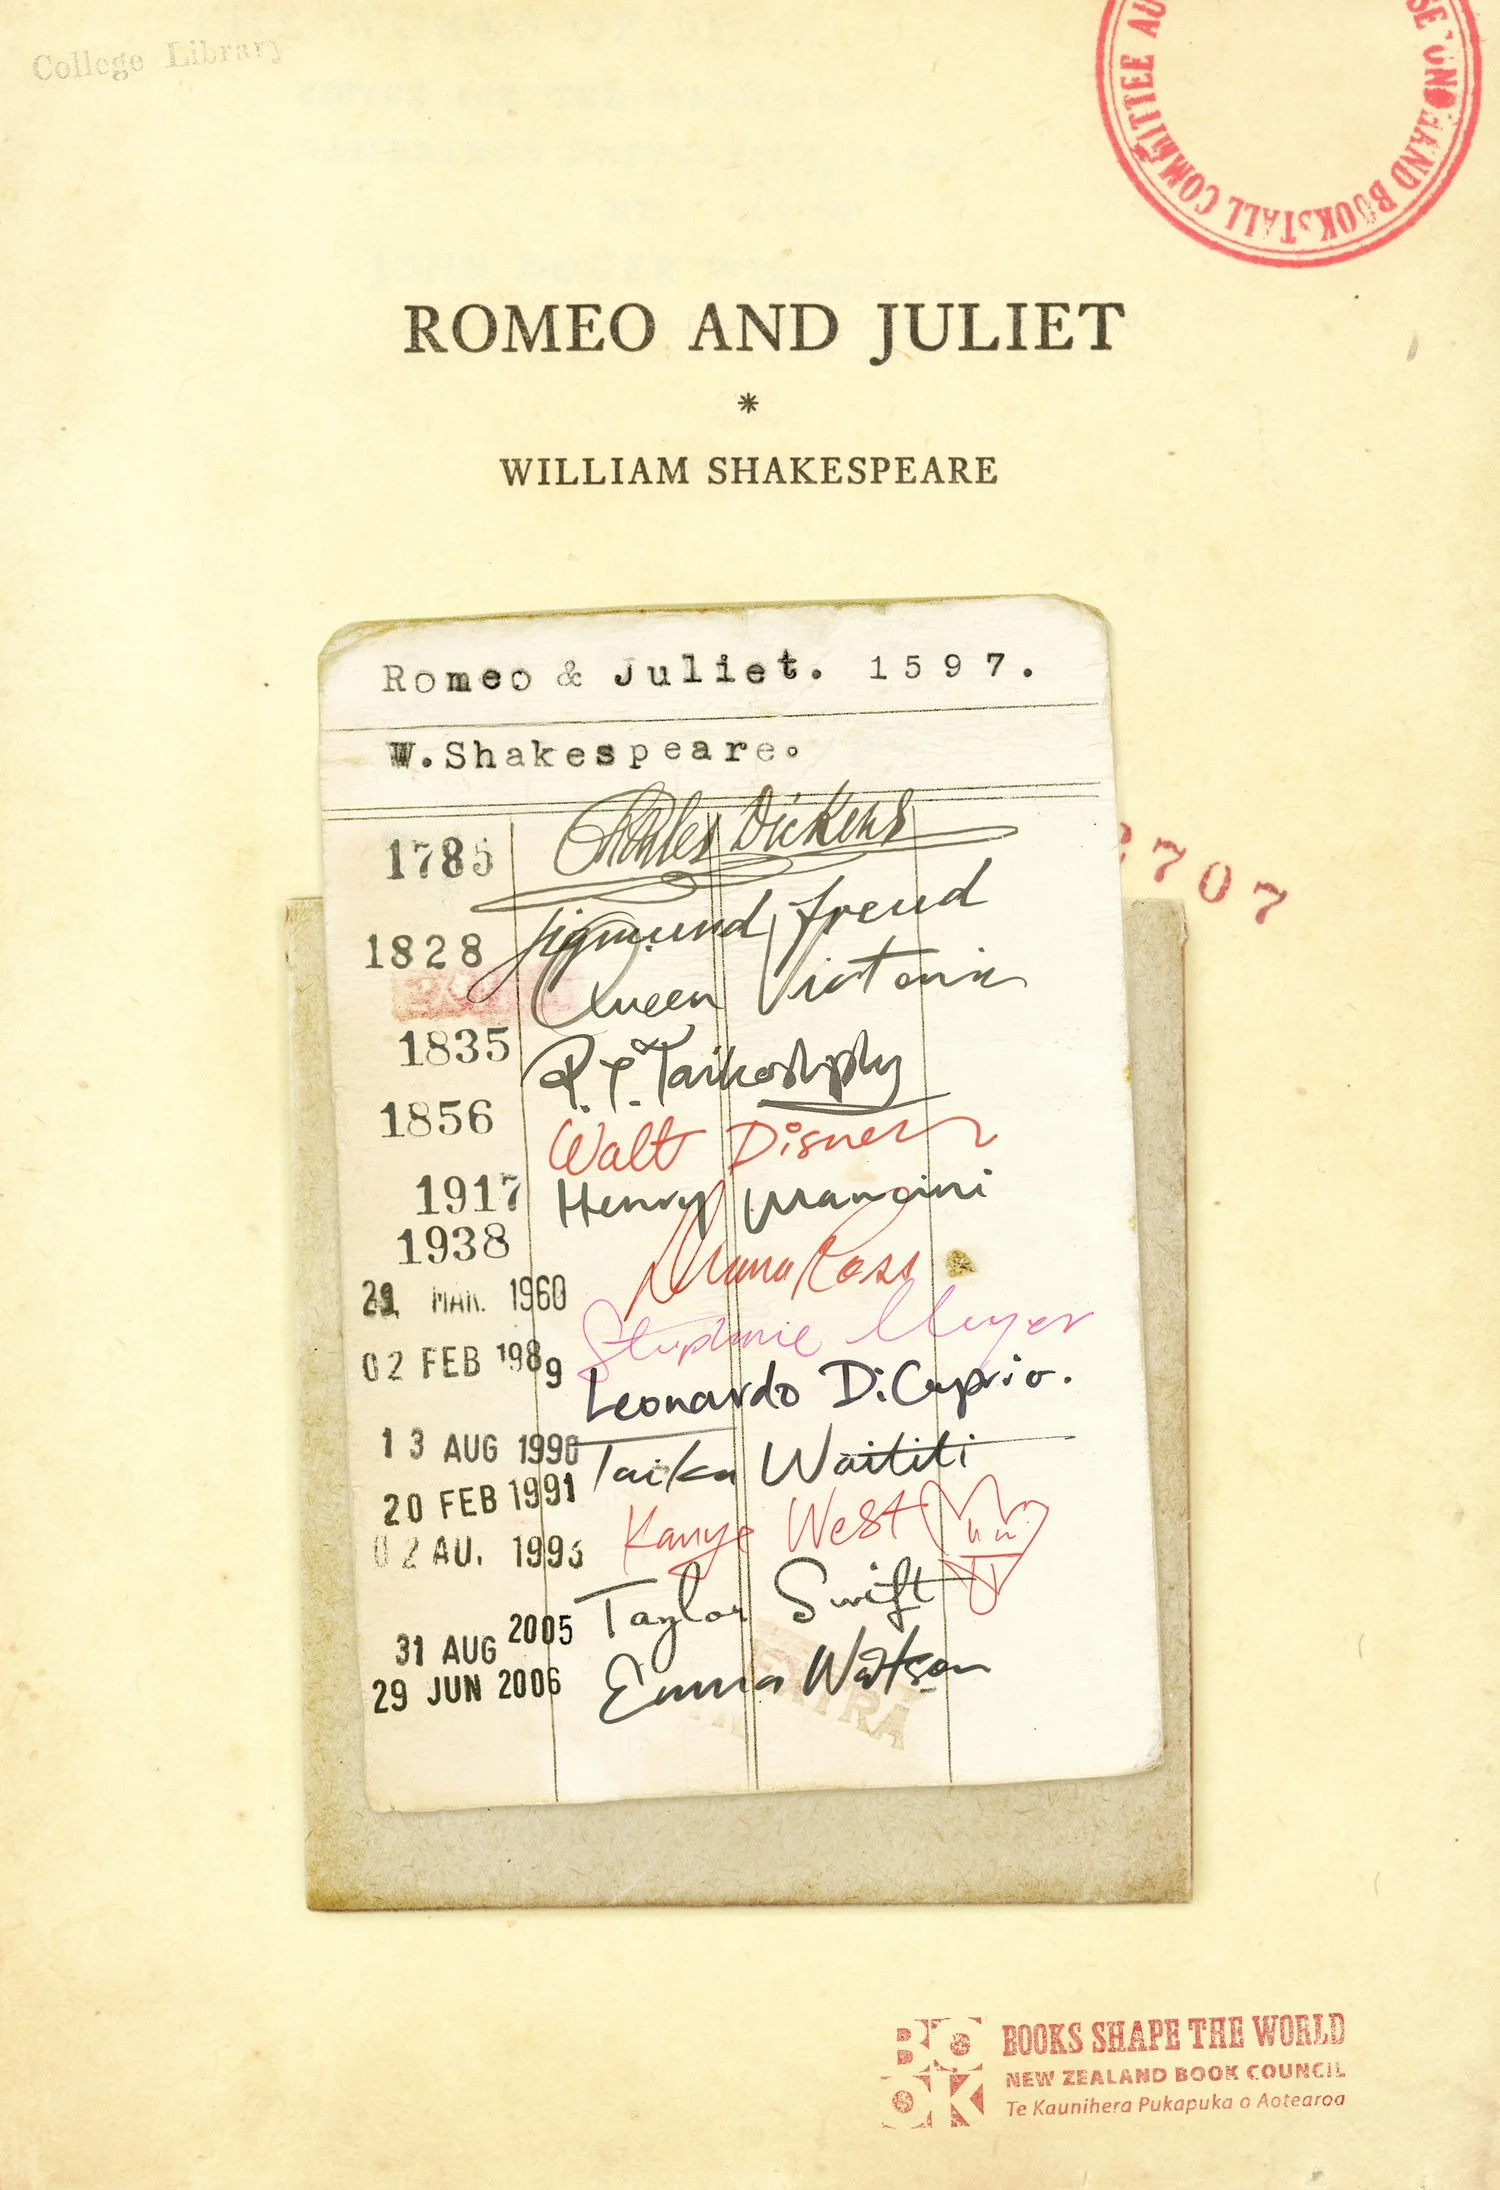 College Library
COMMITTEE
BOOKSTALL
ROMEO AND JULIET
*
WILLIAM SHAKESPEARE
Romeo & Juliet. 1597.
W.Shakespeare.
1785 Charles Dickens
2707
1828 Sigmund Freud
Queen Victoria
1835
1856
1917 Walt Disney
Henry Mancini
1938 Diana Ross
MAR. 1960
Stephanie Meyer
02 FEB 1989
Leonardo DiCaprio.
13 AUG 1990 Taika Waititi
20 FEB 1991
02 AU. 1993 Kanye West
Taylor Swift
31 AUG 2005
29 JUN 2006 Emma Watson
BOOK
BOOKS SHAPE THE WORLD
NEW ZEALAND BOOK COUNCIL
Te Kaunihera Pukapuka o Aotearoa